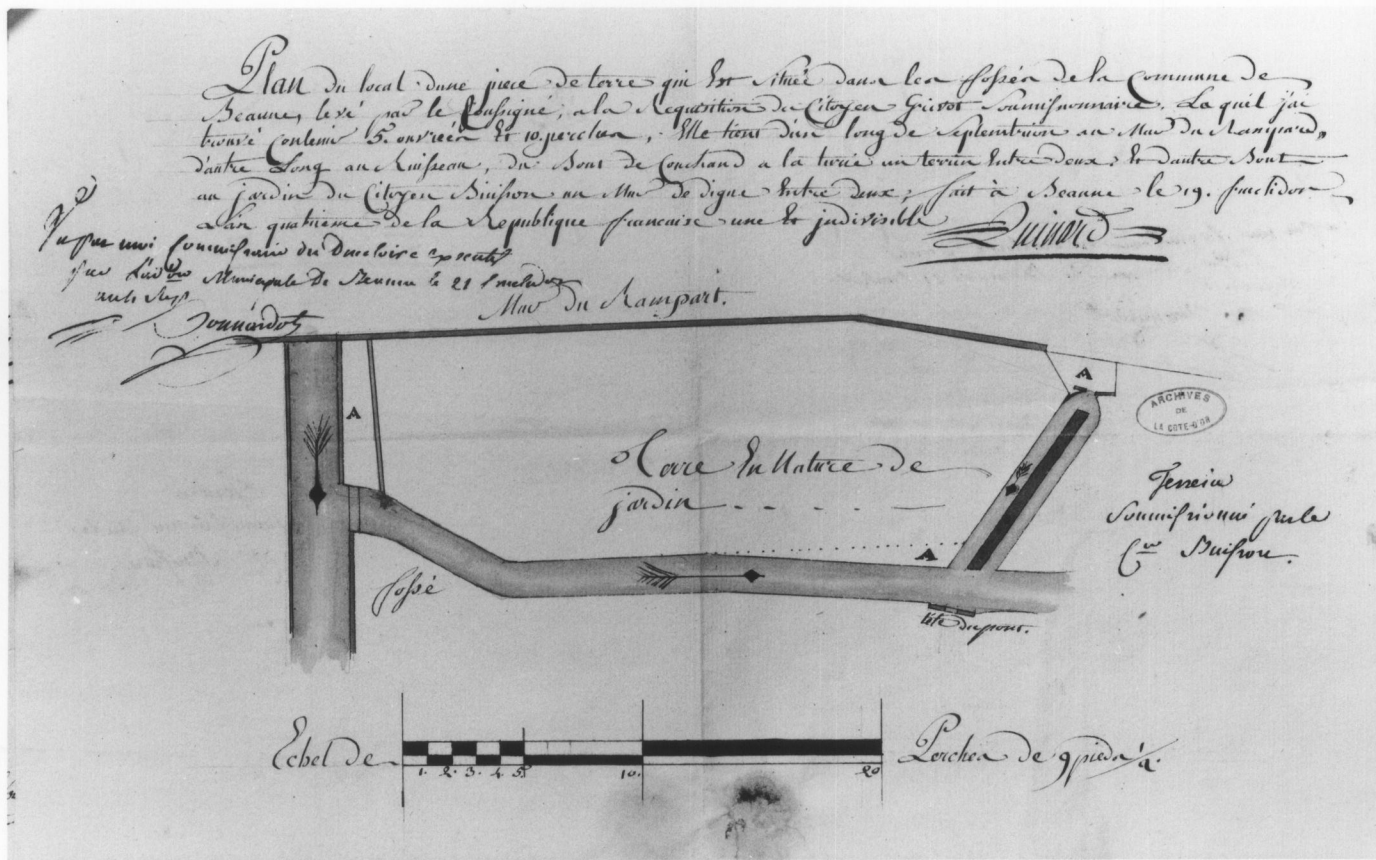 Plan du local dune piece de terre qui Est située dans les fossés de la Commune de
Beaune, levé par le soussigné, a la Requisition du Citoyen Grivot Soumissionnaire, Laquel j'ai
trouvé contenir 5. ouvrées Et 10. perches, Elle tient d'un long de Septentrion au Mur du Rampard,
d'autre Long au Ruisseau, du Bout de Couchand a la un terrin Entre deux, Et d'autre Bout
au jardin du Citoyen Buisson un Mur de digue Entre deux, fait à Beaune le 19. fructidor
Lan quatrieme de la Republique francaise une Et jndivisible
Vu par moi Commissaire du Directoire executif
Municipale De Beaune le 21 fructidor
Mur du Rampart.
A
A
ARCHIVES
DE
LA COTE-D'OR
Terre En Nature de
jardin
Terrein
Soumissionné par le
Cen Buisson.
A
fossé
tête du pont.
Echel de
1. 2. 3. 4. 5. 10. 20
Perches de 9 pieds